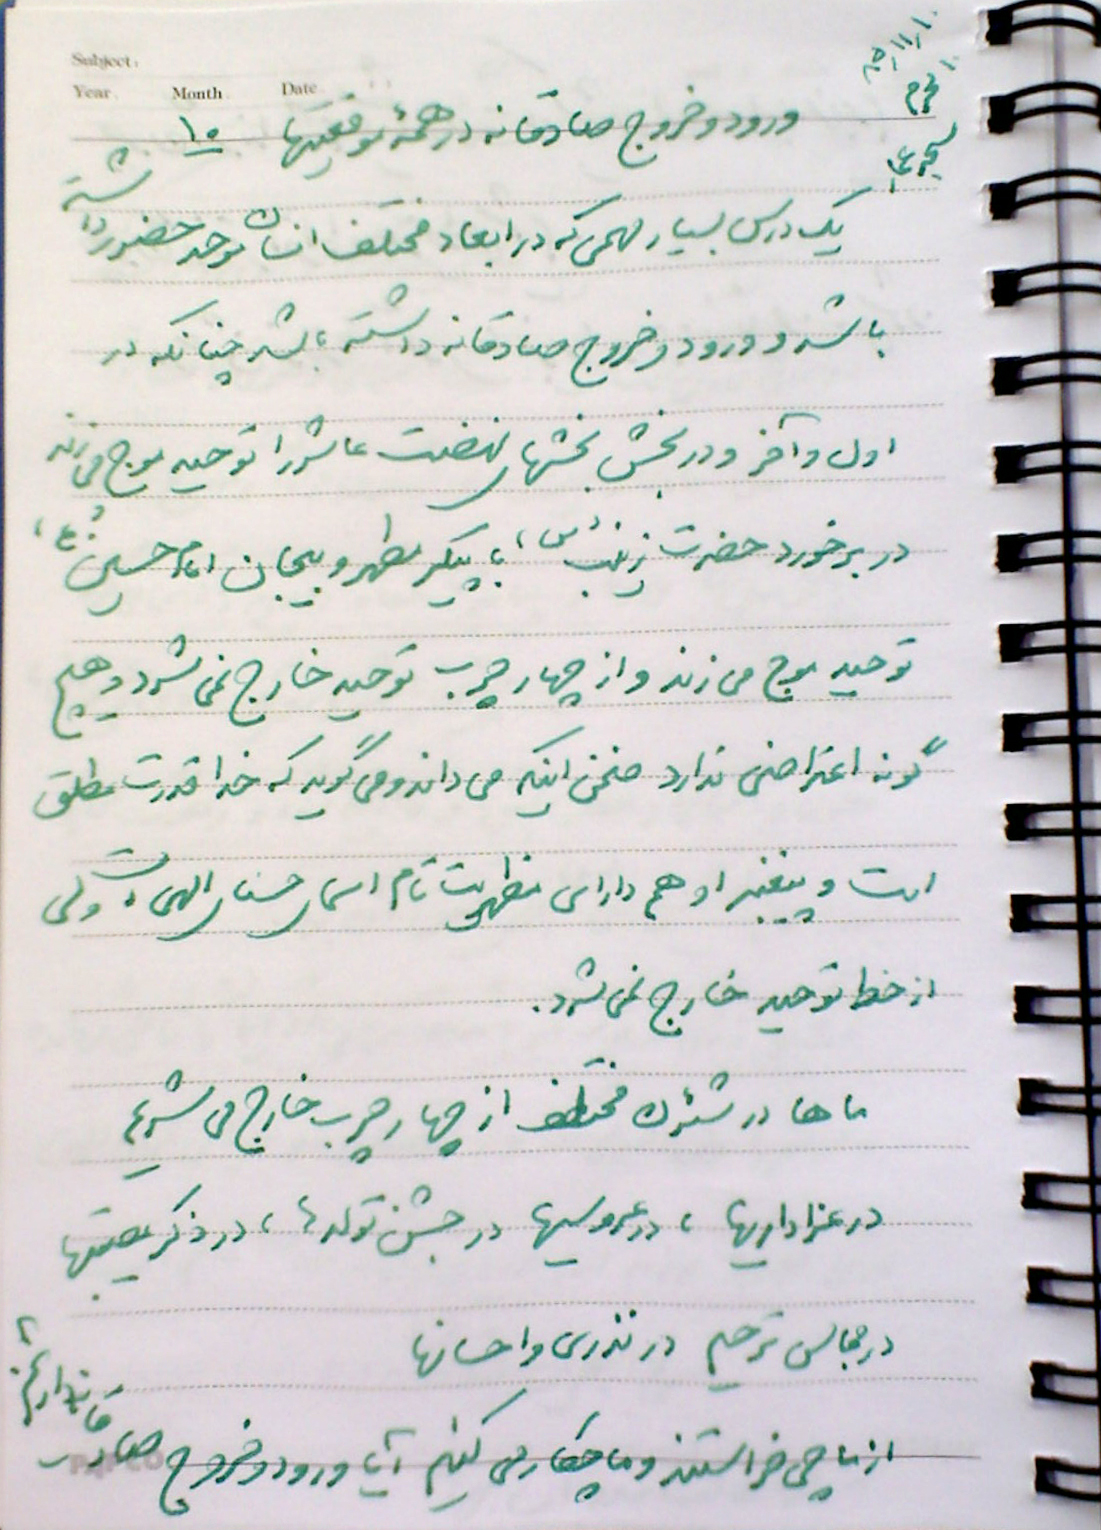 Subject:
Year. Month. Date.
۸۵/۱۱/۱۰
۱۰ محرم
ورود و خروج صادقانه در همهٔ موقعیتها ۱۰
یک درس بسیار مهمی که در ابعاد مختلف انسان موحد حضور داشته
باشد و ورود و خروج صادقانه داشته باشد چنانکه در
اول و آخر و در بخش بخشهای نهضت عاشورا توحید موج می زند
در برخورد حضرت زینب (س) با پیکر مطهر و بیجان امام حسین (ع)
توحید موج می زند و از چهارچوب توحید خارج نمی شود و هیچ
گونه اعتراضی ندارد ضمن اینکه می داند و می گوید که خدا قدرت مطلق
است و پیغمبر او هم دارای مظهریت تام اسمای حسنای الهی است ولی
از خط توحید خارج نمی شود.
ماها در شئون مختلف از چهارچوب خارج می شویم
در عزاداریها، در عروسیها در جشن تولدها، در ذکر مصیبتها
در مجالس ترحیم در نذری و احسانها
از ما چی خواستند و ما چکار می کنیم آیا ورود و خروج صادقانه داریم؟
PAPCO